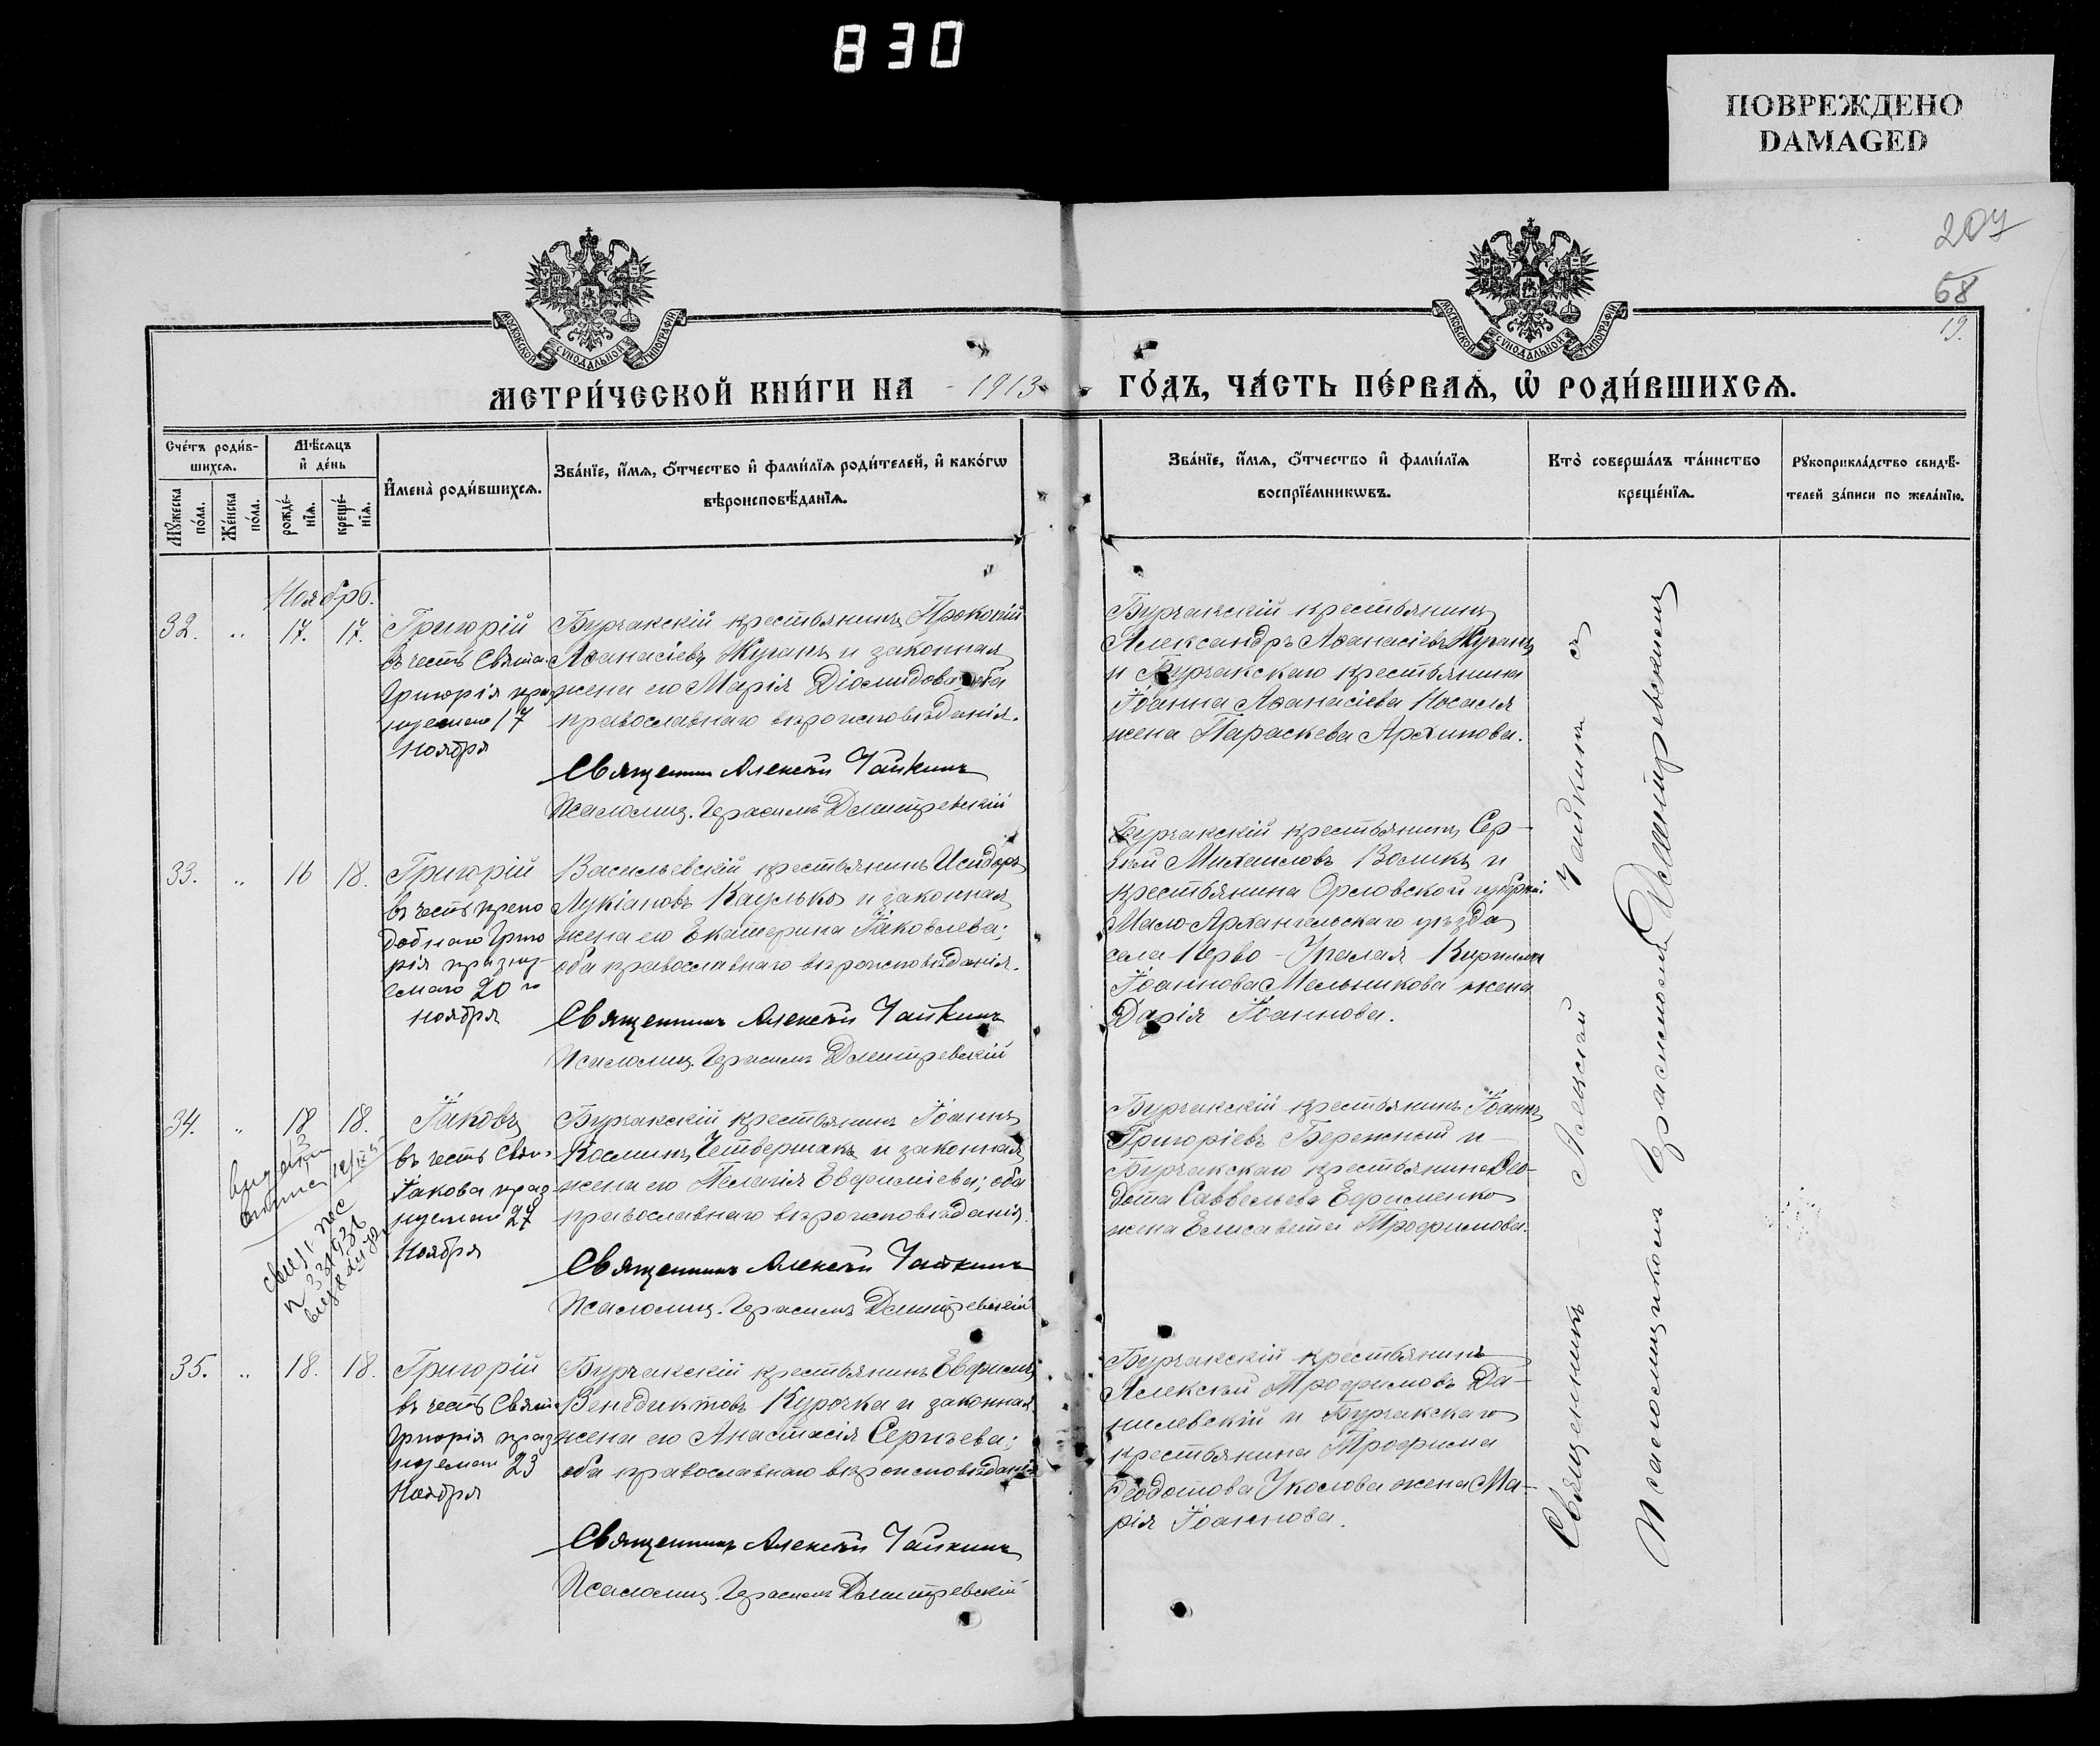 830
ПОВРЕЖДЕНО
DAMAGED
207
68
19.
МОСКОВСКОЙ СѴНОДАЛЬНОЙ ТИПОГРАФІИ
МОСКОВСКОЙ СѴНОДАЛЬНОЙ ТИПОГРАФІИ
МЕТРИ́ЧЕСКОЙ КНИ́ГИ НА 1913 ГО́ДЪ, ЧА́СТЬ ПЕ́РВАѦ, Ѡ҆ РОДИ́ВШИХСѦ.
Сче́тъ роди́в-
шихсѧ.
Мѣ́сѧцъ
и҆ де́нь
Мꙋ́жеска
по́ла.
Же́нска
по́ла.
рожде́-
нїѧ.
креще́-
нїѧ.
И҆мена̀ роди́вшихсѧ.
Зва́нїе, и҆́мѧ, ѻ҆́тчество и҆ фами́лїѧ роди́телей, и҆ како́гѡ
вѣроисповѣ́данїѧ.
Зва́нїе, и҆́мѧ, ѻ҆́тчество и҆ фами́лїѧ
воспрїе́мникѡвъ.
Кто̀ соверша́лъ та́инство
креще́нїѧ.
Рꙋкоприкла́дство свидѣ́-
телей за́писи по жела́нїю.
Ноябрь.
32. „ 17. 17.
Григорій
въ честь Свята
Григорія праз
нуемаго 17
Ноября
Бурчакскій крестьянинъ Прокопій
Аѳанасіевъ Журанъ и законная
жена его Марія Діомидова; оба
православнаго вѣроисповѣданія.
Священникъ Алексѣй Чайкинъ
Псаломщ. Герасимъ Дмитревскій
Бурчакскій крестьянинъ
Александръ Аѳанасіевъ Журанъ
и Бурчакскаго крестьянина
Іоанна Аѳанасіева Носаля
жена Параскева Архипова.
33. „ 16 18.
Григорій
въ честь препо
добнаго Григо
рія празну-
емаго 20 го
ноября
Васильевскій крестьянинъ Исидоръ
Лукіановъ Кацулько и законная
жена его Екатерина Іаковлева;
оба православнаго вѣроисповѣданія.
Священникъ Алексѣй Чайкинъ
Псаломщ. Герасимъ Дмитревскій
Бурчакскій крестьянинъ Сер-
гѣй Михаиловъ Воликъ и
крестьянина Орловской губерніи
Мало-Архангельскаго уѣзда
села Кирилла
Іоаннова Мельникова жена
Дарія Іоаннова.
34. „ 18 18.
Іаковъ
въ честь Свят.
Іакова праз
нуемаго 27
Ноября
Бурчакскій крестьянинъ Іоаннъ
Косминъ Четвертакъ и законная
жена его Пелагія Евфиміева; оба
православнаго вѣроисповѣданія.
Священникъ Алексѣй Чайкинъ
Псаломщ. Герасимъ Дмитревскій
Бурчакскій крестьянинъ Іоаннъ
Григоріевъ Бережный и
Бурчакскаго крестьянина Ѳео-
дота Саввельева Ефименко
жена Елисавета Трофимова.
35. „ 18. 18.
Григорій
въ честь Свята
Григорія праз
нуемаго 23
Ноября
Бурчакскій крестьянинъ Евфимъ
Венедиктовъ Курочка и законная
жена его Анастасія Сергѣева;
оба православнаго вѣроисповѣданія
Священникъ Алексѣй Чайкинъ
Псаломщ. Герасимъ Дмитревскій
Бурчакскій крестьянинъ
Алексѣй Трофимовъ Да-
нилевскій и Бурчакскаго
крестьянина Трофима
Ѳеодотова Уколова жена Ма-
рія Іоаннова.
Священникъ Алексѣй Чайкинъ съ
Псаломщикомъ Герасимомъ Дмитревскимъ